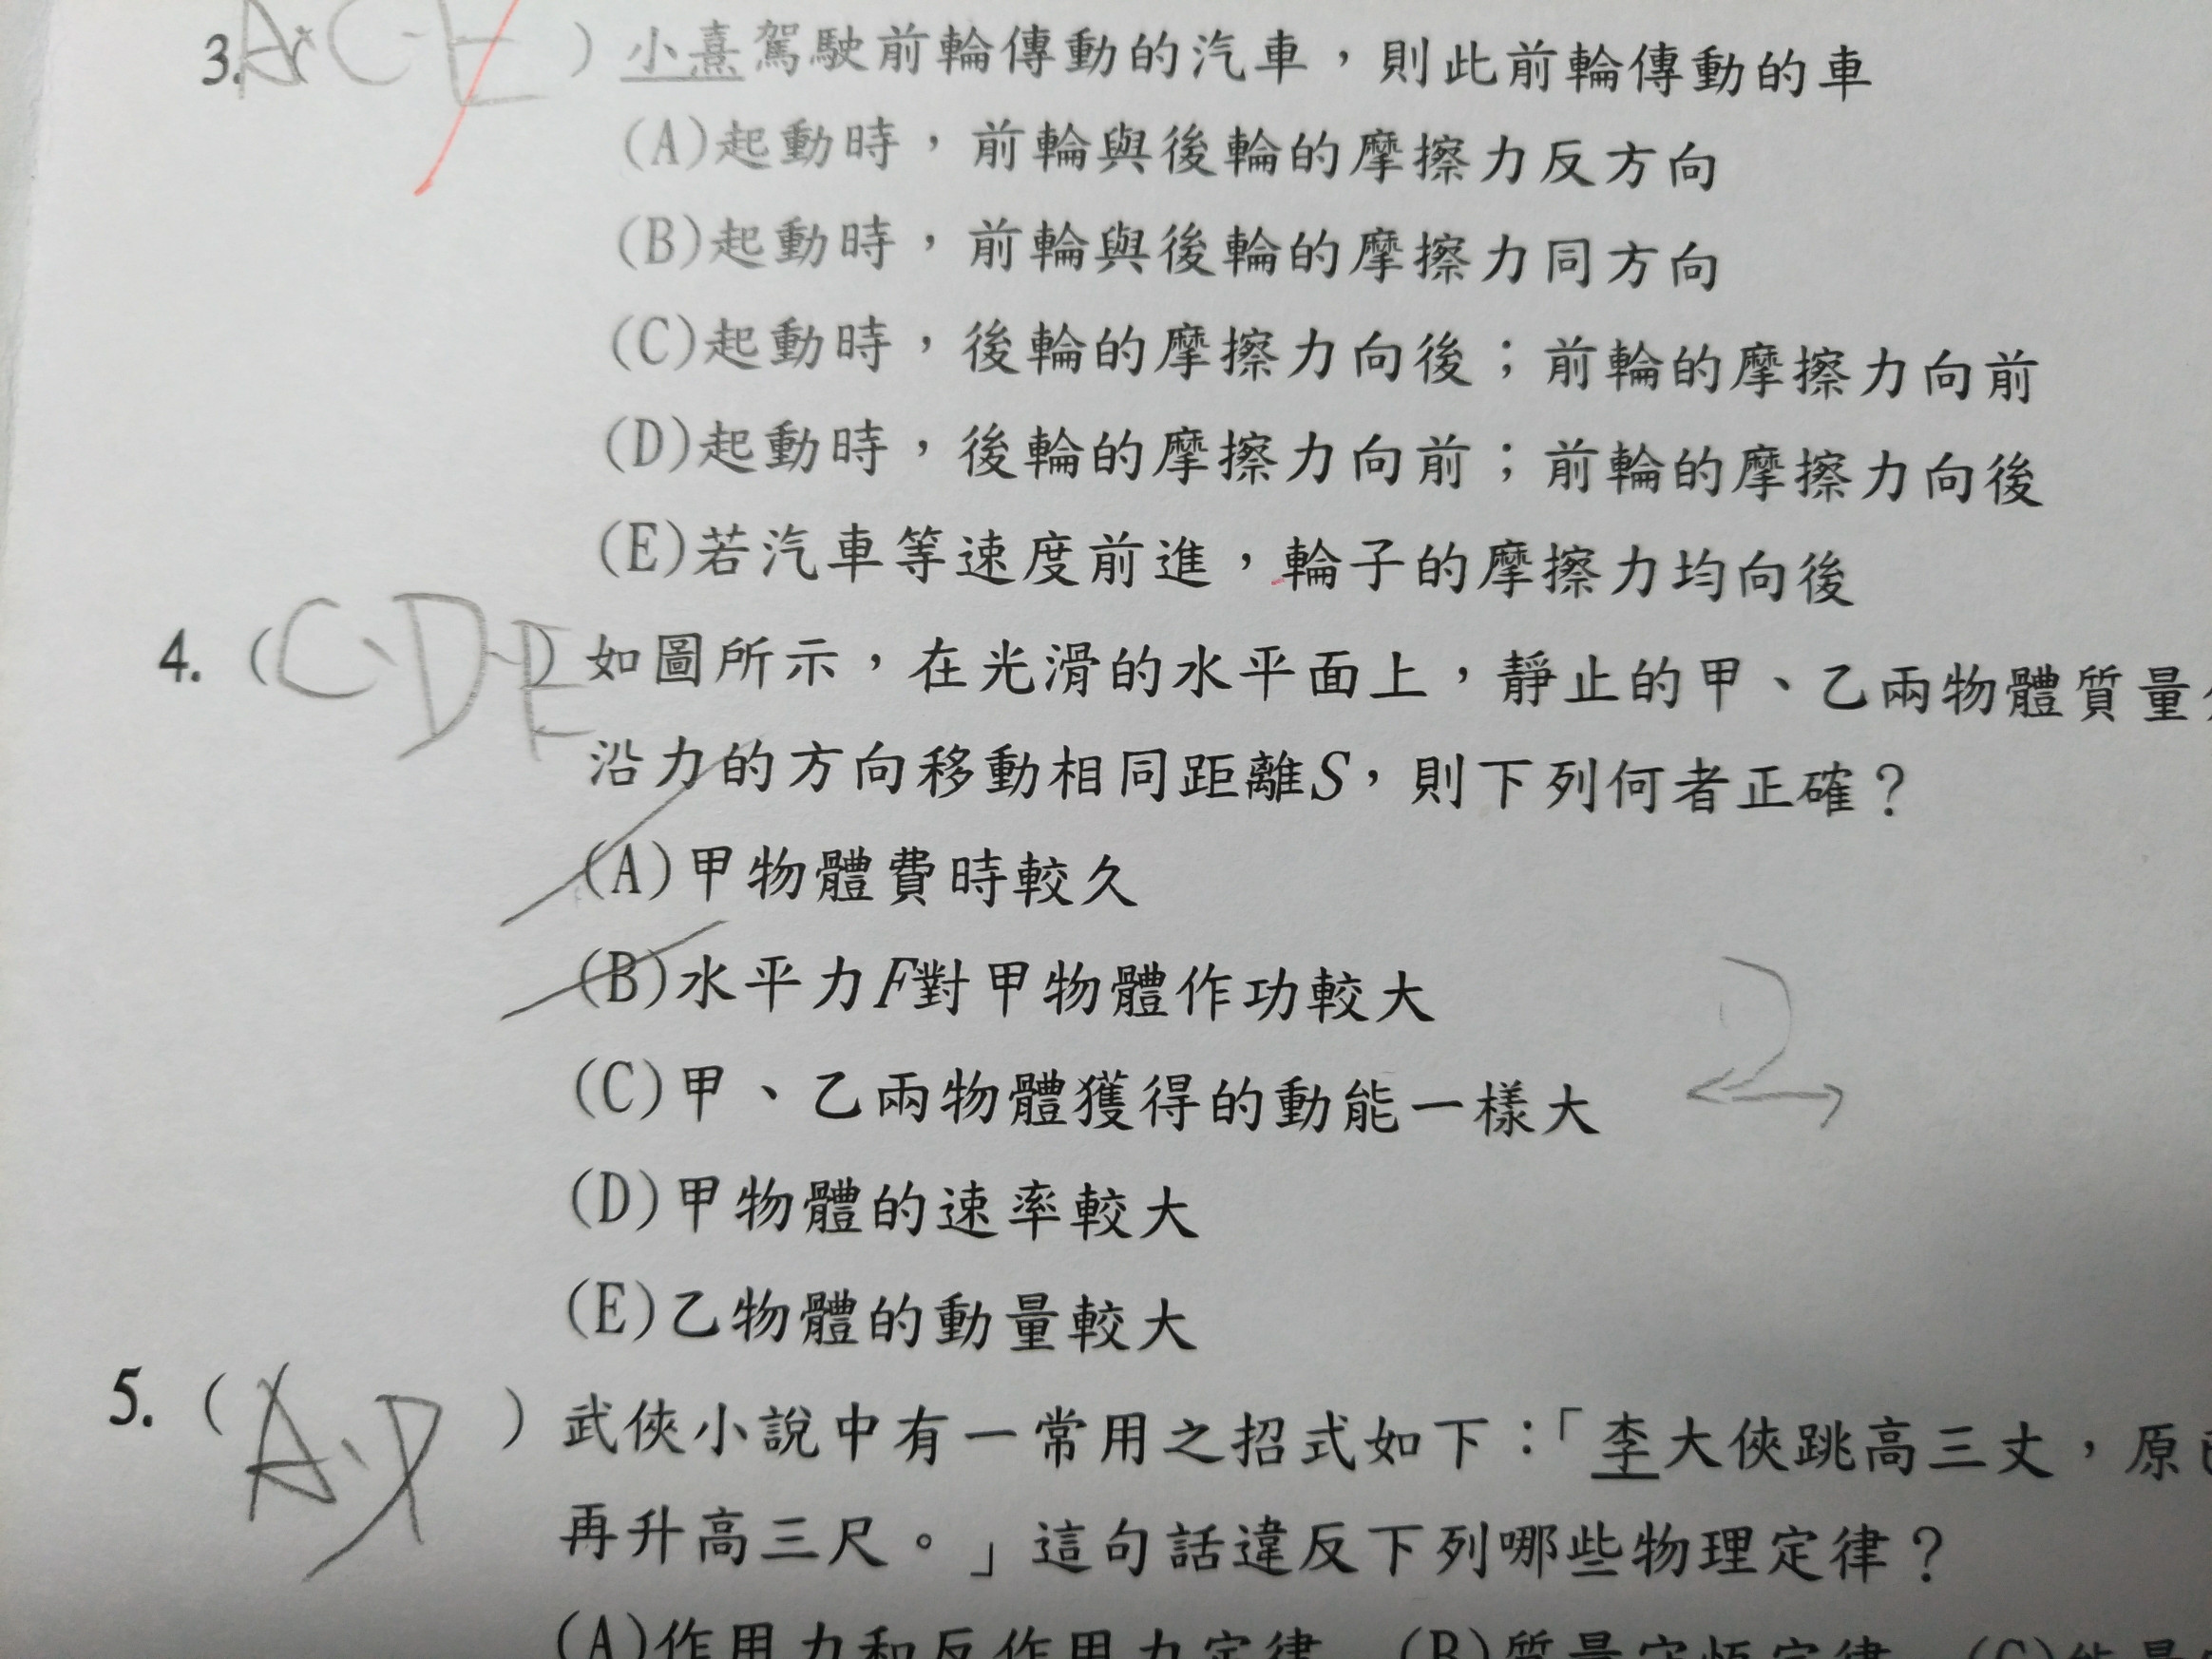 3. A、C、E ) 小熹駕駛前輪傳動的汽車，則此前輪傳動的車
(A)起動時，前輪與後輪的摩擦力反方向
(B)起動時，前輪與後輪的摩擦力同方向
(C)起動時，後輪的摩擦力向後；前輪的摩擦力向前
(D)起動時，後輪的摩擦力向前；前輪的摩擦力向後
(E)若汽車等速度前進，輪子的摩擦力均向後
4. (C、D、E) 如圖所示，在光滑的水平面上，靜止的甲、乙兩物體質量
沿力的方向移動相同距離S，則下列何者正確？
(A)甲物體費時較久
(B)水平力F對甲物體作功較大
(C)甲、乙兩物體獲得的動能一樣大
(D)甲物體的速率較大
(E)乙物體的動量較大
5. (A、D ) 武俠小說中有一常用之招式如下：「李大俠跳高三丈，原
再升高三尺。」這句話違反下列哪些物理定律？
(A)作用力和反作用力定律 (B)質量守恆定律 (C)能量